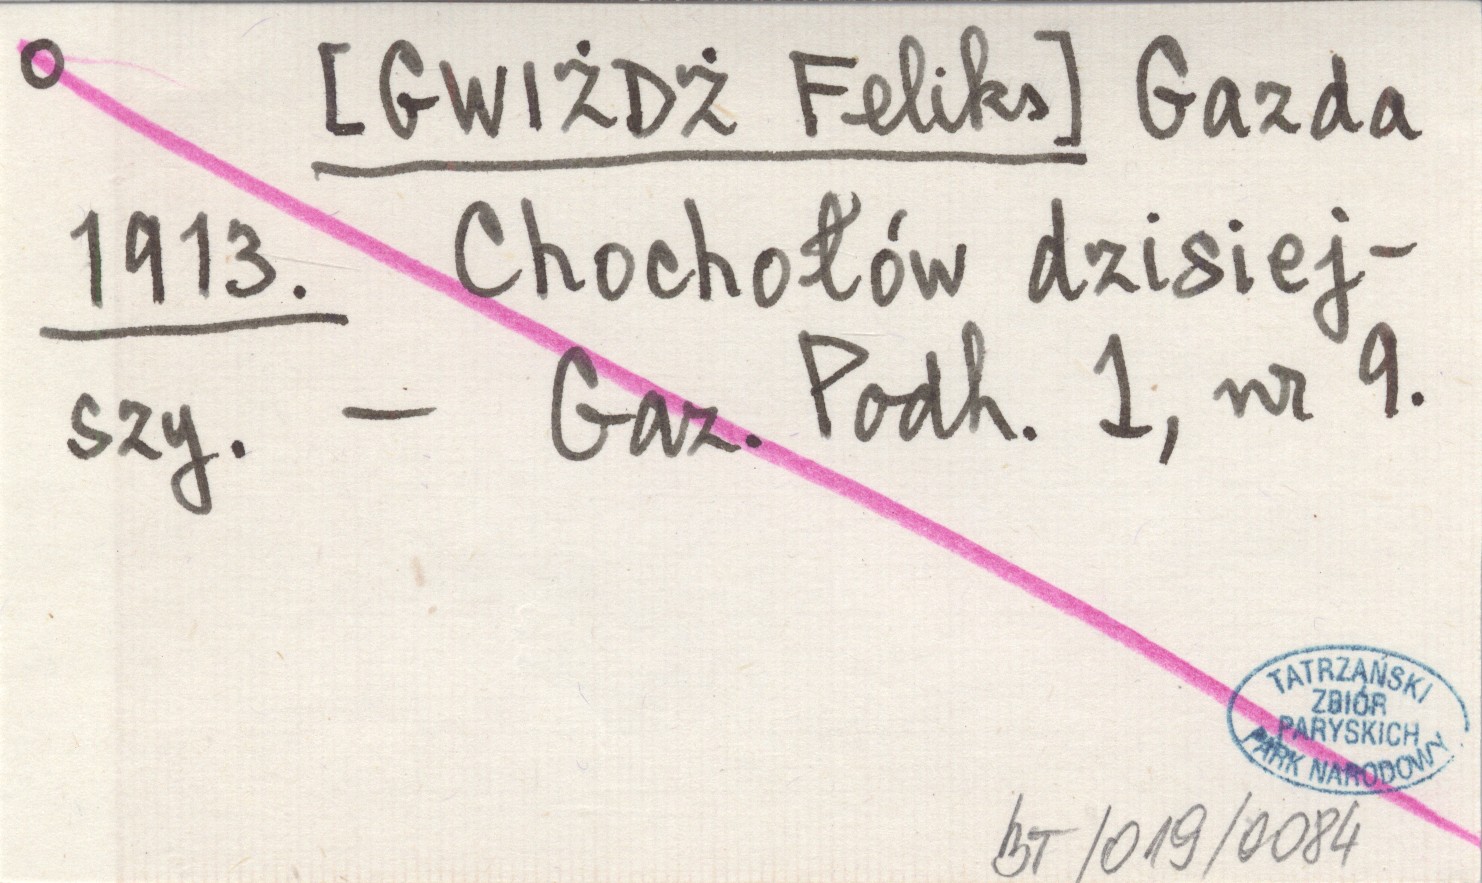 O [GWIŻDŻ Feliks] Gazda
1913. Chochołów dzisiej-
szy. — Gaz. Podh. 1, nr 9.
TATRZAŃSKI
ZBIÓR
PARYSKICH
PARK NARODOWY
BT/019/0084